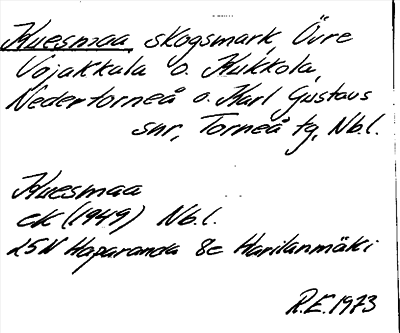 Kuesmaa, skogsmark, Övre
Vojakkala o. Kukkola,
Nedertorneå o. Karl Gustavs
snr, Torneå tg, Nb.l.
Kuesmaa
ek (1949) Nb.l.
25N Haparanda 8c Harilanmäki
R.E. 1973